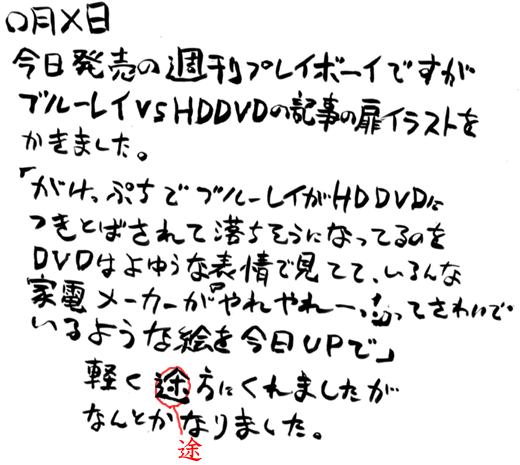 〇月×日
今日発売の週刊プレイボーイですが
ブルーレイVSHDDVDの記事の扉イラストを
かきました。
「がけっぷちでブルーレイがHDDVDに
つきとばされて落ちそうになってるのを
DVDはよゆうな表情で見てて、いろんな
家電メーカーが『やれやれーっ』ってさわいで
いるような絵を今日UPで」
軽く途方にくれましたが
なんとかなりました。
途